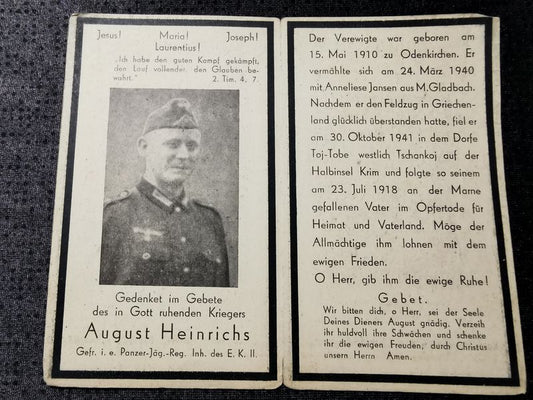 Jesus! Maria! Joseph!
Laurentius!
„Ich habe den guten Kampf gekämpft,
den Lauf vollendet, den Glauben be-
wahrt." 2. Tim. 4, 7.
Gedenket im Gebete
des in Gott ruhenden Kriegers
August Heinrichs
Gefr. i. e. Panzer-Jäg.-Reg. Inh. des E. K. II.
Der Verewigte war geboren am
15. Mai 1910 zu Odenkirchen. Er
vermählte sich am 24. März 1940
mit Anneliese Jansen aus M.Gladbach.
Nachdem er den Feldzug in Griechen-
land glücklich überstanden hatte, fiel er
am 30. Oktober 1941 in dem Dorfe
Toj-Tobe westlich Tschankoj auf der
Halbinsel Krim und folgte so seinem
am 23. Juli 1918 an der Marne
gefallenen Vater im Opfertode für
Heimat und Vaterland. Möge der
Allmächtige ihm lohnen mit dem
ewigen Frieden.
O Herr, gib ihm die ewige Ruhe!
Gebet.
Wir bitten dich, o Herr, sei der Seele
Deines Dieners August gnädig. Verzeih
ihr huldvoll ihre Schwächen und schenke
ihr die ewigen Freuden, durch Christus
unsern Herrn Amen.